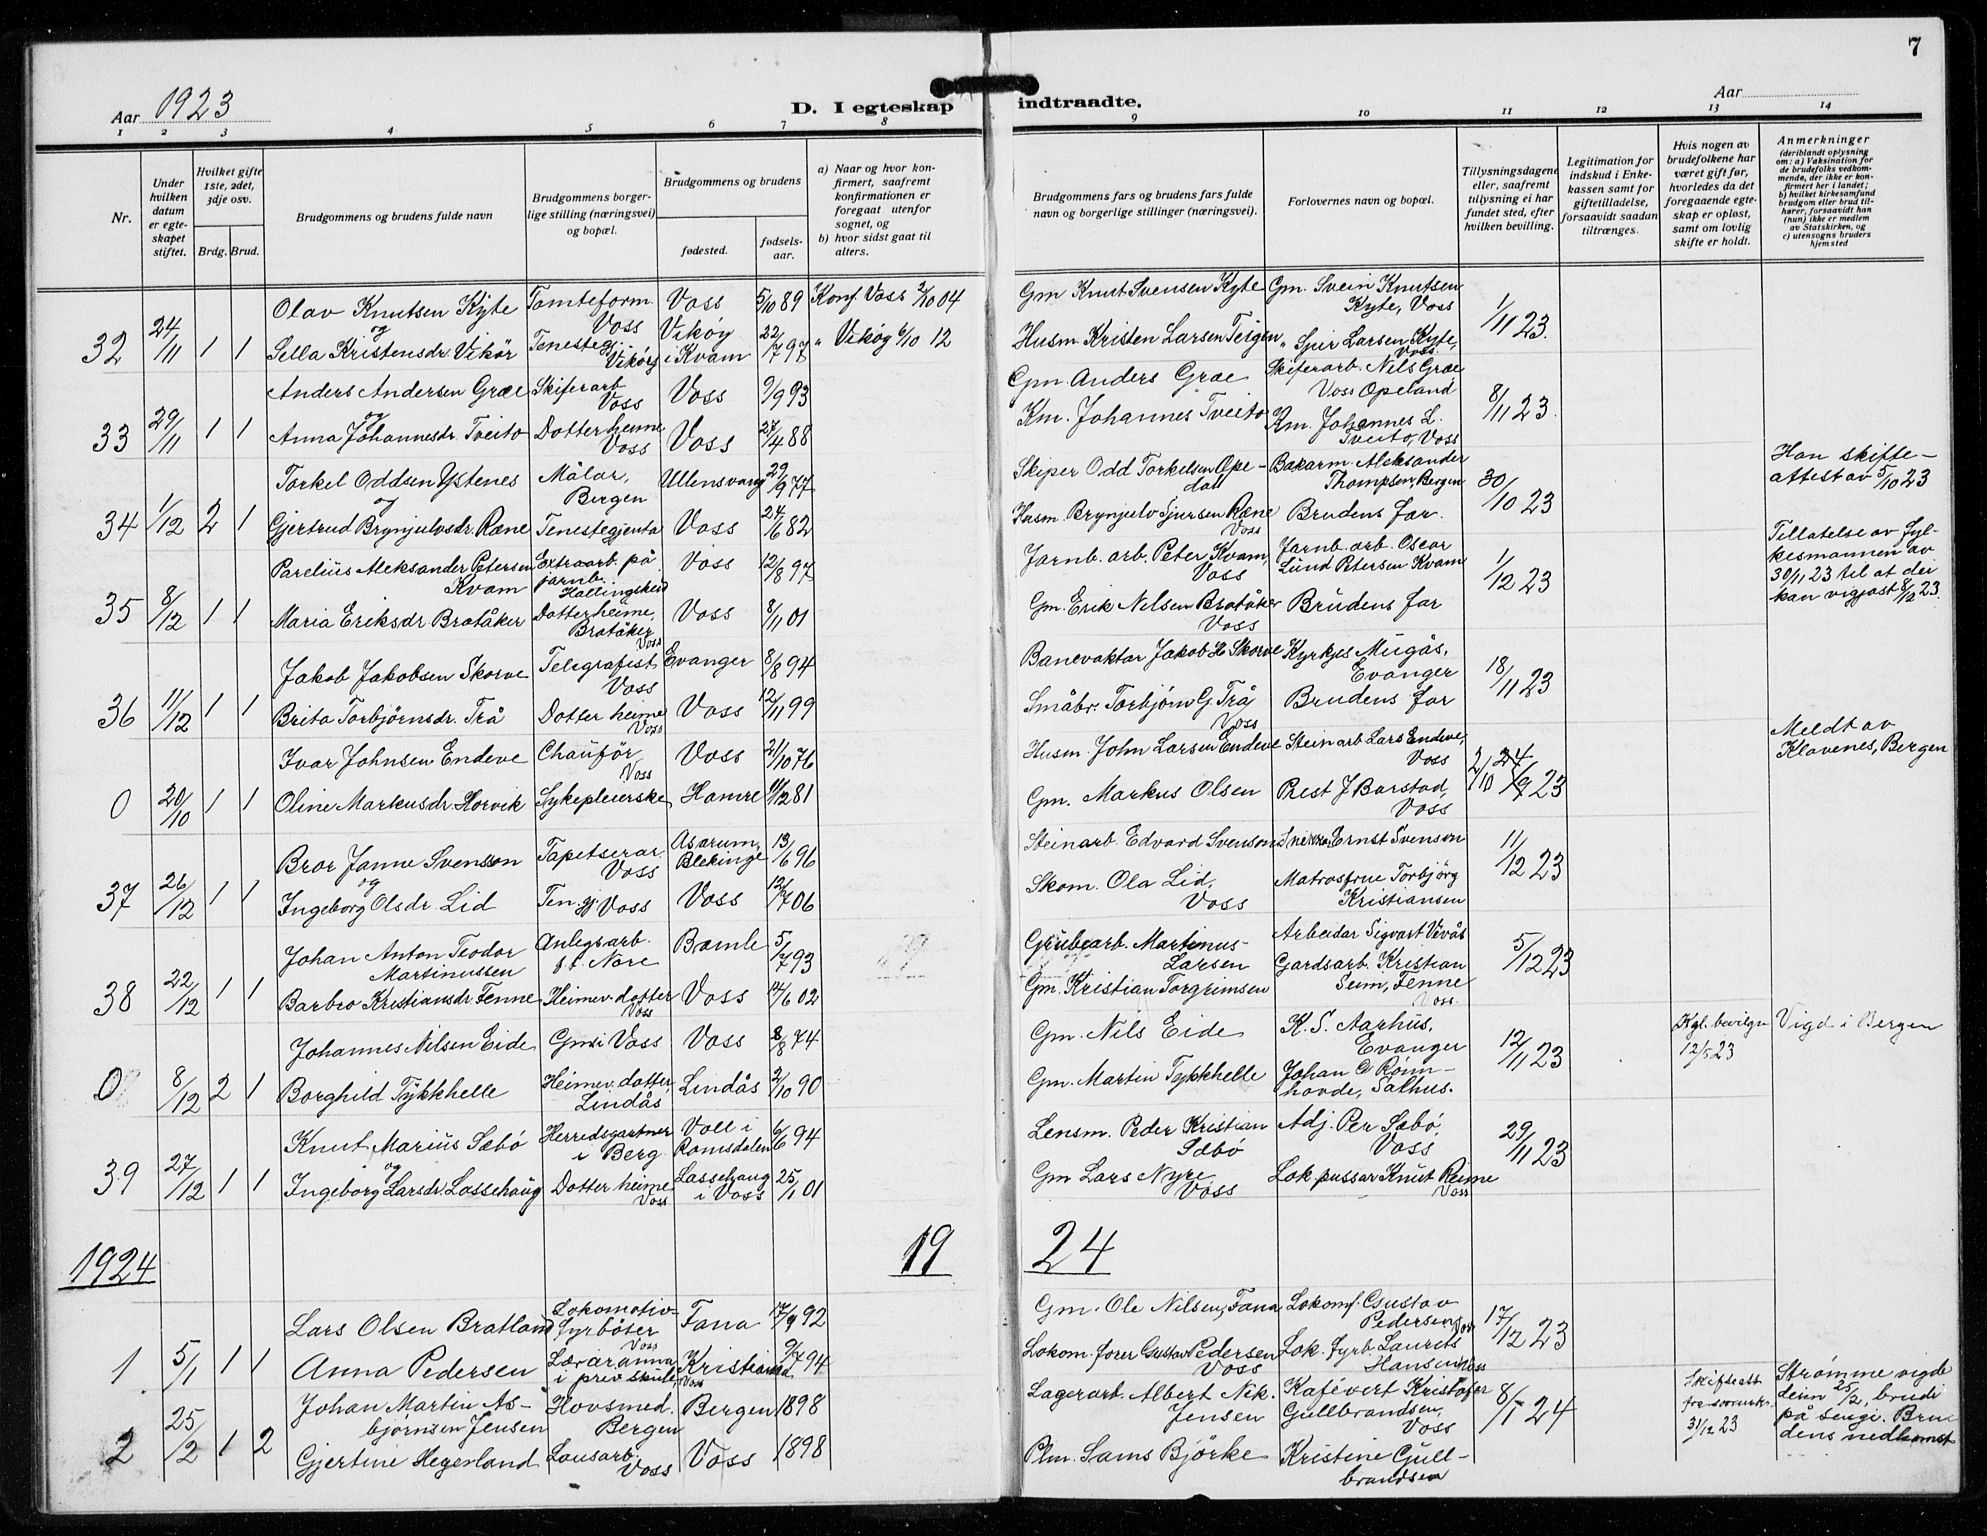 7
Aar 1923
D. I egteskap indtraadte.
Aar
1 2 3 4 5 6 7 8 9 10 11 12 13 14
Nr.
Under hvilken datum er egteskapet stiftet.
Hvilket gifte 1ste, 2det, 3dje osv.
Brdg. Brud.
Brudgommens og brudens fulde navn
Brudgommens borgerlige stilling (næringsvei) og bopæl.
Brudgommens og brudens
fødested.
fødselsaar.
a) Naar og hvor konfirmert, saafremt konfirmationen er foregaat utenfor sognet, og
b) hvor sidst gaat til alters.
Brudgommens fars og brudens fars fulde navn og borgerlige stillinger (næringsvei).
Forlovernes navn og bopæl.
Tillysningsdagene eller, saafremt tillysning ei har fundet sted, efter hvilken bevilling.
Legitimation for indskud i Enkekassen samt for giftetilladelse, forsaavidt saadan tiltrænges.
Hvis nogen av brudefolkene har været gift før, hvorledes da det foregaaende egteskap er opløst, samt om lovlig skifte er holdt.
Anmerkninger
(deriblandt oplysning om: a) Vaksination for de brudefolks vedkommende, der ikke er konfirmert her i landet; b) hvilket kirkesamfund brudgom eller brud tilhører, forsaavidt han (hun) ikke er medlem av Statskirken, og c) utensogns bruders hjemsted
Olav Knutsen Kyte Tomteform. Voss Voss 5/10 89 Konf. Voss 2/10 04 Gm Knut Svensen Kyte Gm. Svein Knutsen Kyte, Voss 1/11 23.
32 24/11 1 1 og Sella Kristensdr. Vikør Tenesteg. Vikøy Vikøy i Kvam 22/7 97 " Vikøy 6/10 12 Husm. Kristen Larsen Teigen " Sjur Larsen Kyte, Voss.
Anders Andersen Græe Skiferarb Voss Voss 9/9 93 Gm. Anders Græe Skiferarb. Nils Græe Voss Opeland 8/11 23.
33 29/11 1 1 og Anna Johannesdr. Tveito Dotter heime Voss Voss 27/4 88 Km. Johannes Tveito Km. Johannes L. Tveito, Voss
Torkel Oddsen Ystenes Målar, Bergen Ullensvang 29/9 77 Skiper Odd Torkelsen Opedal Bakarm. Aleksander Thompsen, Bergen 30/10 23 Han skifteattest av 5/10 23
34 1/12 2 1 og Gjertrud Brynjulvsdr. Ræne Tenestegjenta Voss 24/6 82 Husm. Brynjulv Sjursen Ræne Voss Brudens far.
Parelius Aleksander Petersen Kvam Extraarb. på jarnb. Hallingskeid Voss 12/8 97 Jarnb. arb. Peter Kvam, Voss Jarnb. arb. Oscar Lund Petersen Kvam 1/12 23 Tillatelse av fylkesmannen av 30/11 23 til at dei kan vigjast 8/12 23.
35 8/12 1 1 Maria Eriksdr Bratåker Dotter heime, Bratåker Voss Voss 8/11 01 Gm. Erik Nilsen Bratåker Voss Brudens far
Jakob Jakobsen Skorve Telegrafist Voss Evanger 8/8 94 Banevaktar Jakob H Skorve Kyrkjes Mugås, Evanger 18/11 23
36 11/12 1 1 Brita Torbjørnsdr. Trå Dotter heime Voss Voss 12/11 99 Småbr. Torbjørn G. Trå Voss Brudens far
Ivar Johnsen Endeve Chaufør Voss Voss 21/10 76 Husm. John Larsen Endeve Steinarb Lars Endeve, Voss Meldt av Klavenes, Bergen
0 20/10 1 1 Oline Markusdr. Horvik Sykepleierske Hamre 11/12 81 Gm. Markus Olsen Prest J Barstad, Voss
Bror Janne Svensson Tapetserar Voss Asarum, Blekinge 13/6 96 Steinarb Edvard Svenson Snikkar Ernst Svenson 11/12 23
37 26/12 1 1 og Ingeborg Olsdr. Lid Ten.gj. Voss Voss 12/7 06 Skom. Ola Lid, Voss Matrosfrue Torbjørg Kristiansen
Johan Anton Teodor Martinussen Anlegsarb. f.t. Nore Bamle 5/7 93 Grubearb. Martinus Larsen Arbeidar Sigvart Vivås 5/12 23
38 22/12 1 1 Barbro Kristiansdr Fenne Heimev. dotter Voss Voss 14/6 02 Gm. Kristian Torgrimsen Gardsarb. Kristian Seim, Fenne Voss.
Johannes Nilsen Eide Gm i Voss Voss 8/8 74 Gm. Nils Eide K. S. Aarhus, Evanger 12/11 23 Kgl. bevilgn 12/5 23 Vigd i Bergen
0 8/12 2 1 Borghild Tykkhelle Heimev. dotter, Lindås Lindås 2/10 90 Gm. Martin Tykkhelle Johan C Rønnhovde, Salhus.
Knut Marius Sæbø Herredsgartner i Berg Voll i Romsdalen 6/6 94 Lensm. Peder Kristian Sæbø Adj. Per Sæbø, Voss 29/11 23
39 27/12 1 1 og Ingeborg Larsdr. Lassehaug Dotter heime Voss Lassehaug i Voss 25/1 01 Gm Lars Nyre Voss Lok pussar Knut Reime Voss
1924 19 24
Lars Olsen Bratland Lokomotivfyrbøter Voss Fana 17/9 92 Gm. Ole Nilsen, Fana Lokomf. Gustav Pedersen, Voss 17/12 23
1 5/1 1 1 Anna Pedersen Lærarinna i priv skule, Voss Kristiania 9/7 94 Lokom. fører Gustav Pedersen Voss Lok. fyrb. Laurits Hansen Voss
Johan Martin Asbjørnsen Jensen Hovsmed. Bergen Bergen 1898 Lagerarb. Albert Nik. Jensen Kafévert Kristofer Gullbrandsen, Voss 8/1 24 Skifteatt. fra 31/12 23 Strømme vigde deim 25/2, brudi på sengi. Brudens nedkomst
2 25/2 1 2 Gjertine Hegerland Lausarb, Voss Voss 1898 Plm. Sams Bjørke Kristine Gullbrandsen